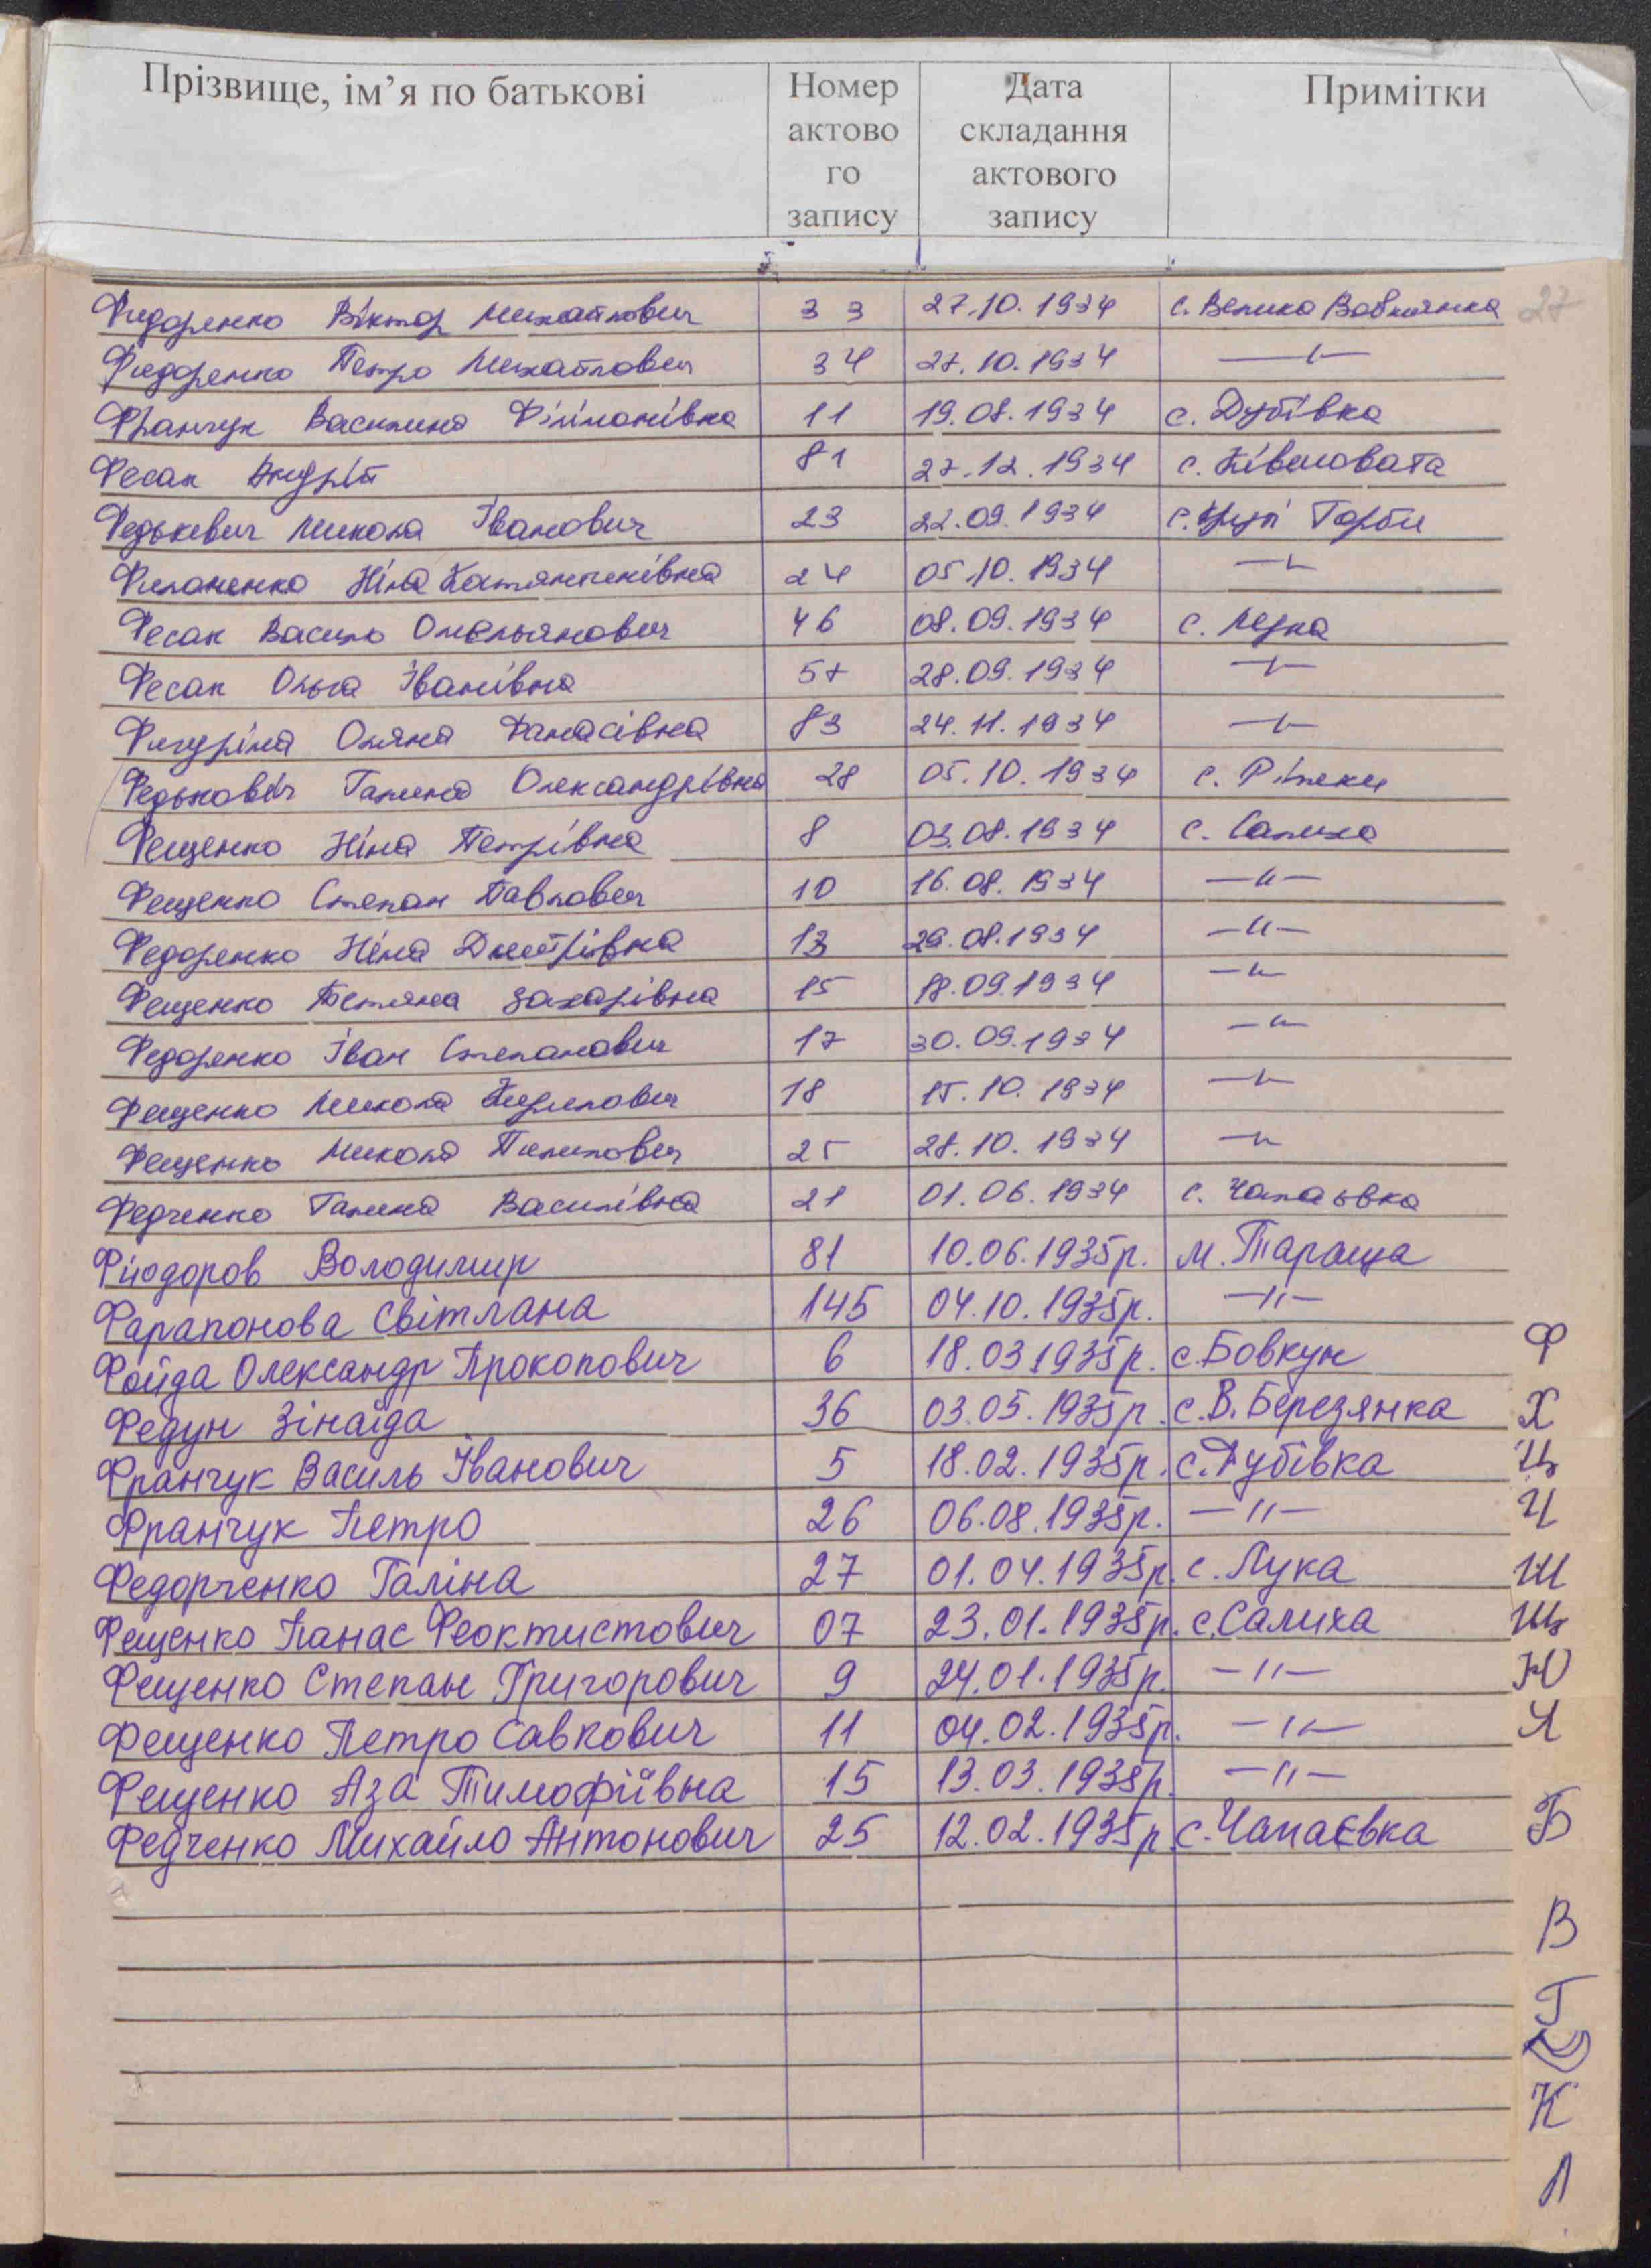 Прізвище, ім’я по батькові Номер актово го запису Дата складання актового запису Примітки
27
Федоренко Віктор Михайлович 33 27.10.1934 с. Велика Вовнянка
Федоренко Петро Михайлович 34 27.10.1934 —"—
Франчук Василина Філімонівна 11 19.08.1934 с. Дубівка
Фесак Андрій 81 27.12.1934 с. Ківшовата
Федькевич Микола Іванович 23 22.09.1934 с. Круті Горби
Филоненко Ніна Костянтинівна 24 05.10.1934 —"—
Фесак Василь Омельянович 46 08.09.1934 с. Лука
Фесак Ольга Іванівна 57 28.09.1934 —"—
Фигуріна Оляна Панасівна 83 24.11.1934 —"—
Федькович Галина Олександрівна 28 05.10.1934 с. Ріжки
Фещенко Ніна Петрівна 8 03.08.1934 с. Салиха
Фещенко Степан Павлович 10 16.08.1934 —"—
Федоренко Ніна Дмитрівна 13 29.08.1934 —"—
Фещенко Тетяна Захарівна 15 18.09.1934 —"—
Федоренко Іван Степанович 17 30.09.1934 —"—
Фещенко Микола Кирилович 18 15.10.1934 —"—
Фещенко Микола Пилипович 25 28.10.1934 —"—
Федченко Галина Василівна 21 01.06.1934 с. Чапаєвка
Фйодоров Володимир 81 10.06.1935р. м. Тараща
Фарапонова Світлана 145 04.10.1935р. —"—
Фойда Олександр Прокопович 6 18.03.1935р. с. Бовкун
Федун Зінаїда 36 03.05.1935р. с. В. Березянка
Франчук Василь Іванович 5 18.02.1935р. с. Дубівка
Франчук Петро 26 06.08.1935р. —"—
Федорченко Галіна 27 01.04.1935р. с. Лука
Фещенко Панас Феоктистович 07 23.01.1935р. с. Салиха
Фещенко Степан Григорович 9 24.01.1935р. —"—
Фещенко Петро Савкович 11 04.02.1935р. —"—
Фещенко Аза Тимофіївна 15 13.03.1935р. —"—
Федченко Михайло Антонович 25 12.02.1935р. с. Чапаєвка
Ф
Х
Ц
Ч
Ш
Щ
Ю
Я
Б
В
Г
К
Л